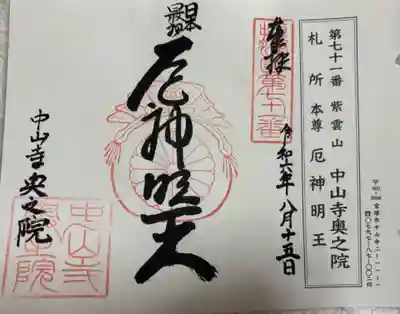 第七十一番 紫雲山 中山寺奥之院
札所本尊 厄神明王
奉拝
令和六年八月十五日
日本
最初
厄神明王
中山寺奥之院
中山寺
奥之院